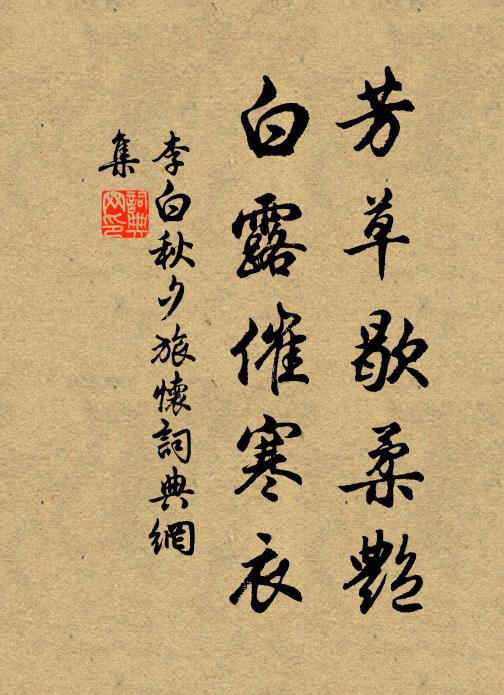 芳草歇柔艷
白露催寒衣
李白秋夕旅懷詞典網
集
詞典
网印